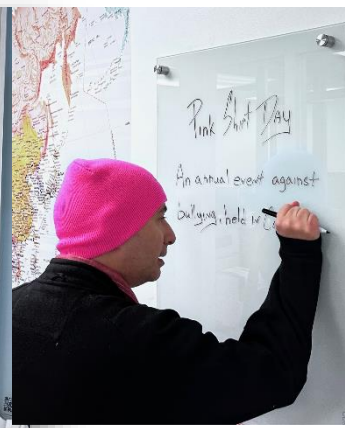 Pink Shirt Day
An annual event against
bullying, held in